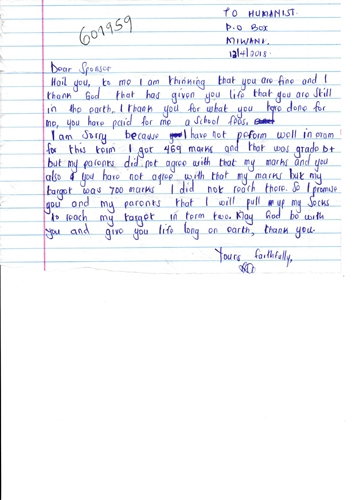 TO HUMANIST.
601959
P.O BOX
MIWANI.
12/4/2018.
Dear Sponsor
Hail you, to me I am thinking that you are fine and I
thank God that has given you life that you are still
in the earth, I thank you for what you have done for
me, you have paid for me a school fees.
I am Sorry because I have not perform well in exam
for this term I got 469 marks and that was grade B+
but my parents did not agree with that my marks and you
also you have not agree with that my marks but my
target was 700 marks I did not reach there. So I promise
you and my parents that I will pull up my Socks
to reach my target in term two. May God be with
you and give you life long on earth, thank you.
Yours faithfully,